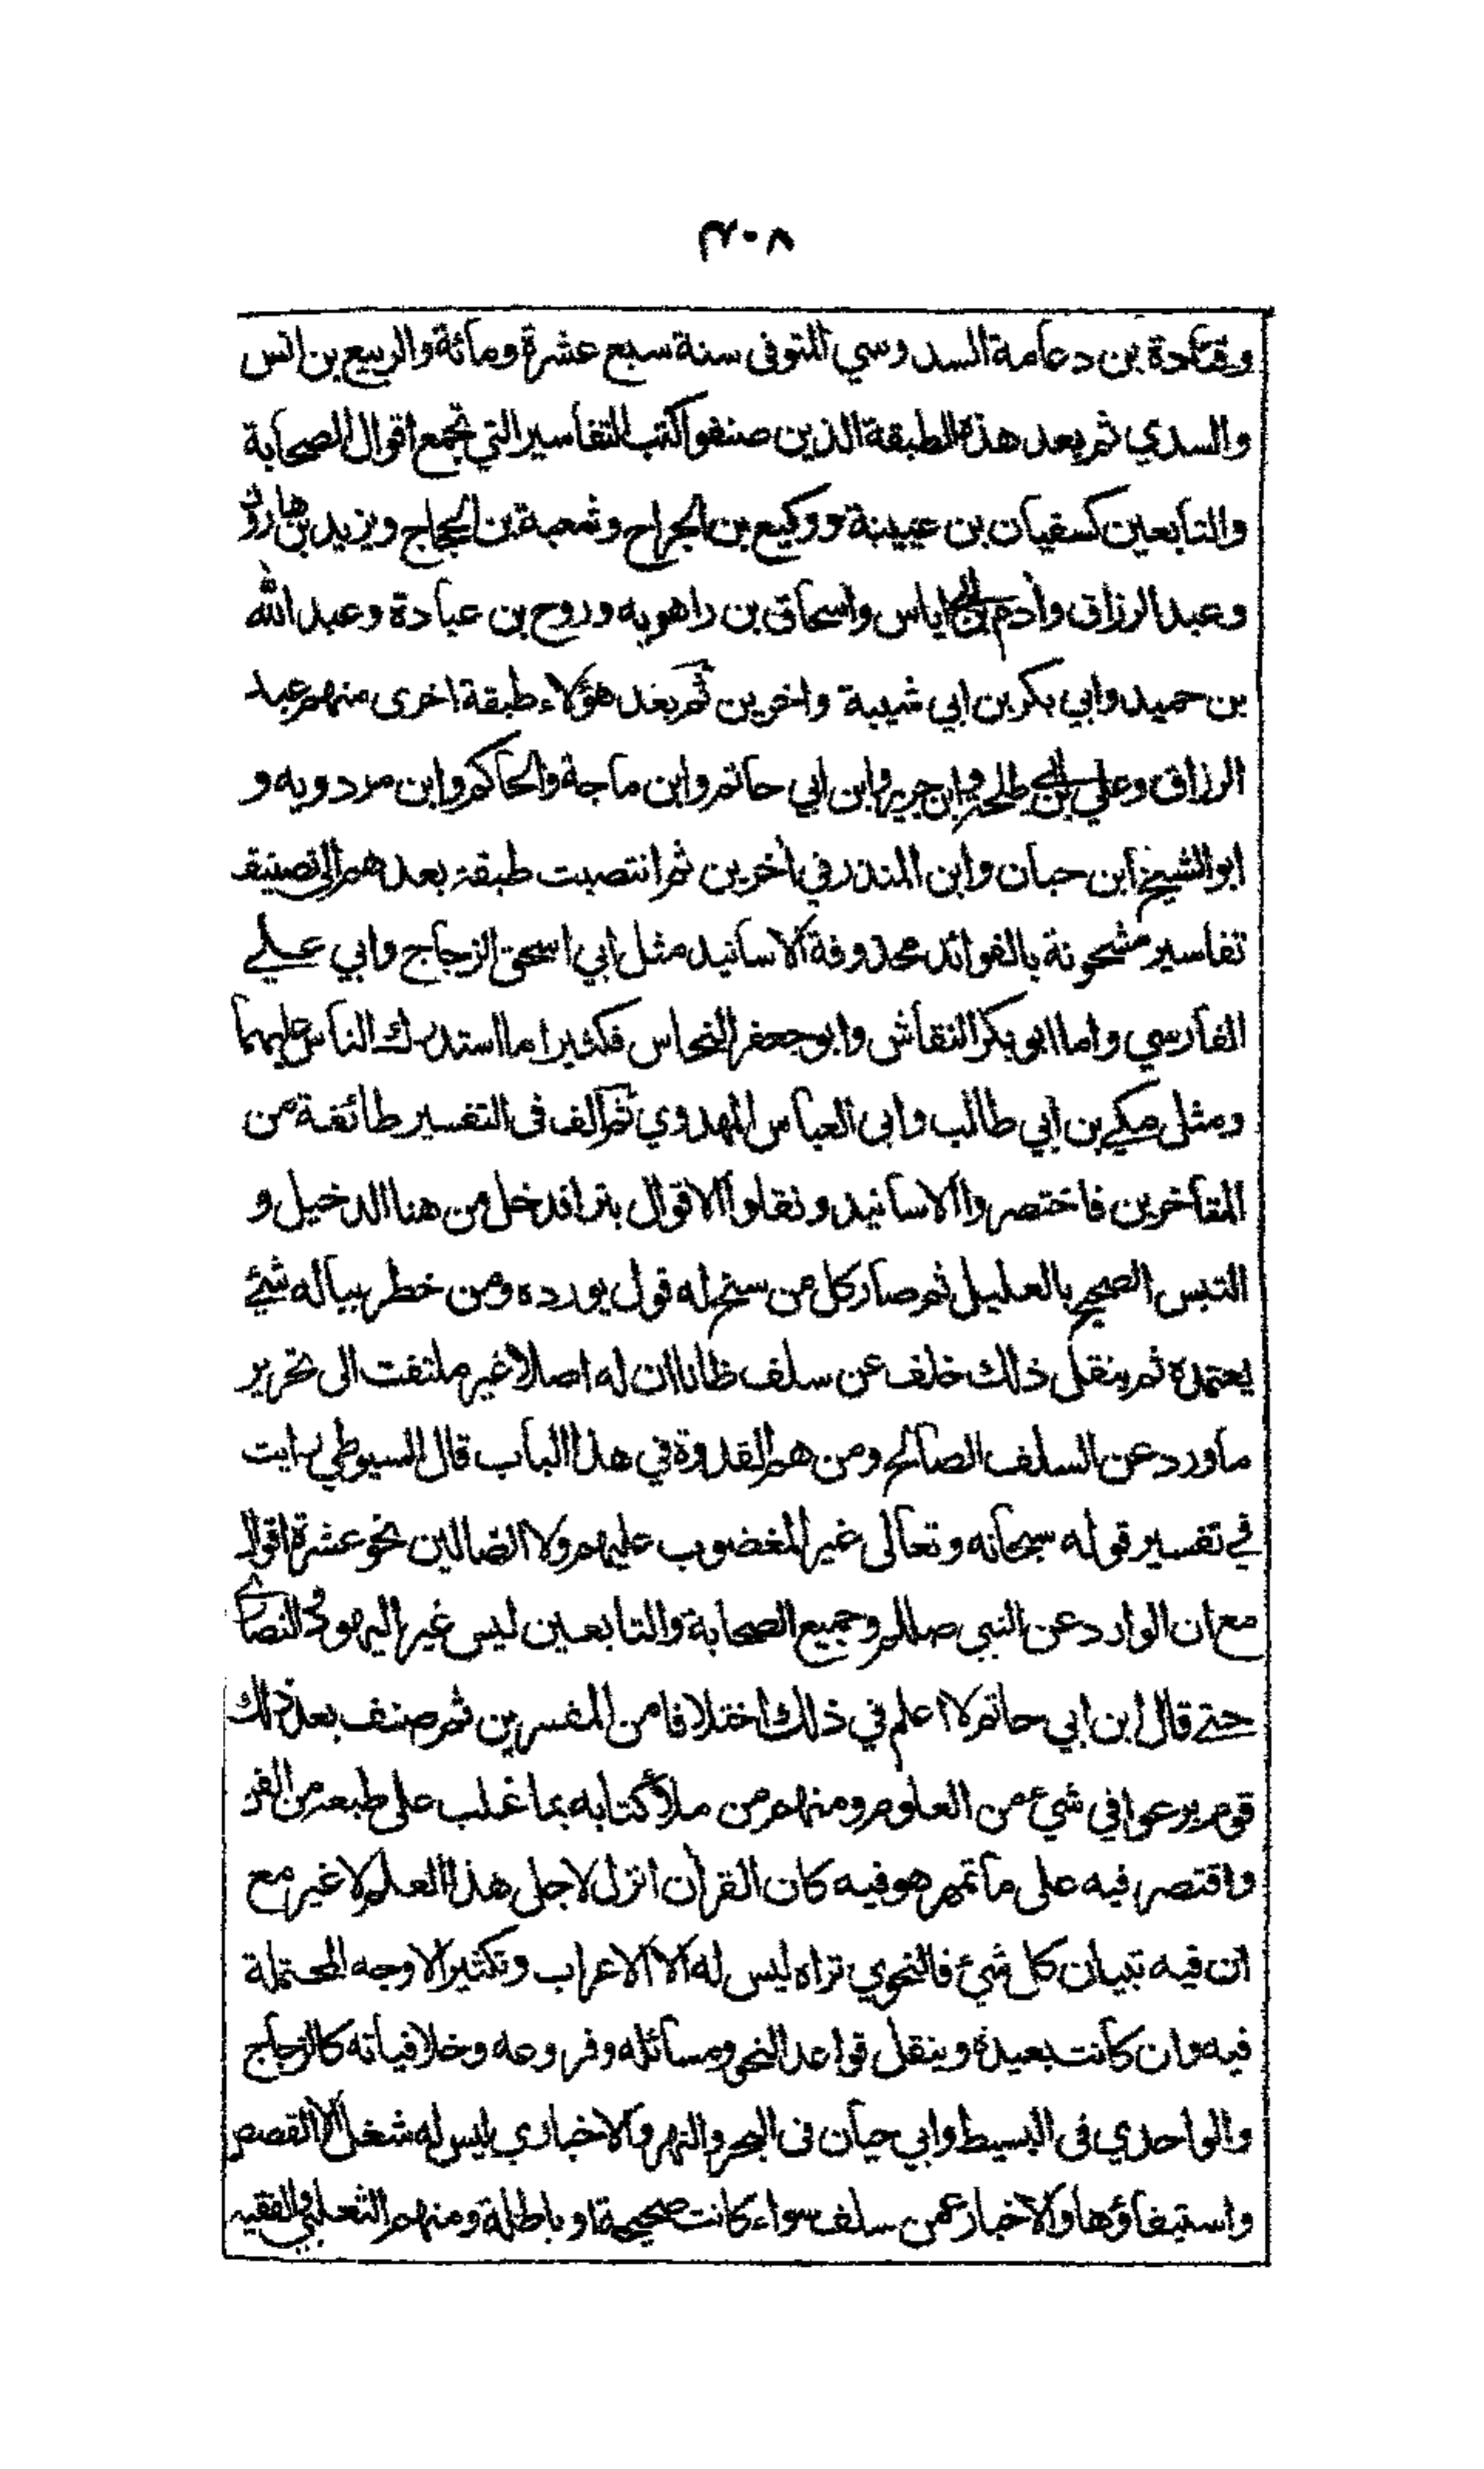 ٣٠٨
وقتادة بن دعامة السدوسي المتوفى سنة سبع عشرة ومائة والربيع بن انس
والسدي ثم بعد هذه الطبقة الذين صنفوا كتب التفاسير التي تجمع اقوال الصحابة
والتابعين كسفيان بن عيينة ووكيع بن الجراح وشعبة بن الحجاج ويزيد بن هارون
وعبد الرزاق وأدم بن ابي اياس واسحاق بن راهويه وروح بن عبادة وعبد الله
بن حميد وابي بكر بن ابي شيبة واخرين ثم بعد هؤلاء طبقة اخرى منهم عبد
الرزاق وعلي بن ابي طلحة وابن جرير وابن ابي حاتم وابن ماجة والحاكم وابن مردويه و
ابو الشيخ ابن حبان وابن المنذر في أخرين ثم انتصبت طبقة بعدهم الى تصنيف
تفاسير مشحونة بالفوائد محذوفة الاسانيد مثل ابي اسحق الزجاج وابي علي
الفارسي واما ابو بكر النقاش وابو جعفر النحاس فكثيرا ما استدرك الناس عليهما
ومثل مكي بن ابي طالب وابى العباس المهدوي ثم الف فى التفسير طائفة من
المتأخرين فاختصروا الاسانيد ونقلوا الاقوال بترا فدخل من هنا الدخيل و
التبس الصحيح بالعليل ثم صار كل من سنح له قول يورده ومن خطر بباله شئ
يعتمده ثم ينقل ذلك خلف عن سلف ظانا ان له اصلا غير ملتفت الى تحرير
ما ورد عن السلف الصالح ومن هم القدوة في هذا الباب قال السيوطي رايت
في تفسير قوله سبحانه وتعالى غير المغضوب عليهم ولا الضالين نحو عشرة اقوال
مع ان الوارد عن النبي صللم وجميع الصحابة والتابعين ليس غير اليهود والنصارى
حتى قال ابن ابي حاتم لا اعلم في ذلك اختلافا من المفسرين ثم صنف بعد ذلك
قوم برعوا في شيء من العلوم ومنهم من ملأ كتابه بما غلب على طبعه من الفن
واقتصر فيه على ما تمهر هو فيه كان القرأن انزل لاجل هذا العلم لا غير مع
ان فيه تبيان كل شيء فالنحوي تراه ليس له الا الاعراب وتكثير الاوجه المحتملة
فيه وان كانت بعيدة وينقل قواعد النحو ومسائله وفروعه وخلافياته كالزجاج
والواحدي فى البسيط وابي حيان فى البحر والنهر والاخباري ليس له شغل الا القصص
واستيفاؤها والاخبار عمن سلف سواء كانت صحيحة او باطلة ومنهم الثعلبي والفقيه